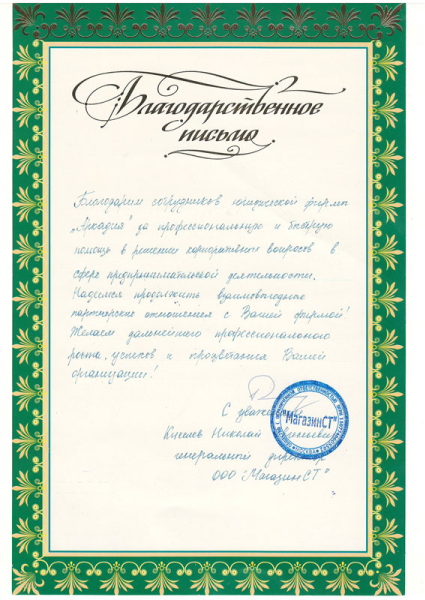 Благодарственное
письмо
Благодарим сотрудников юридической фирмы
"Аркадия" за профессиональную и быструю
помощь в решении корпоративных вопросов в
сфере предпринимательской деятельности.
Надеемся продолжить взаимовыгодные
партнерские отношения с Вашей фирмой!
Желаем дальнейшего профессионального
роста, успехов и процветания Вашей
организации!
С уважением
"МагазинСТ"
Николай
генеральный директор
ООО "МагазинСТ"